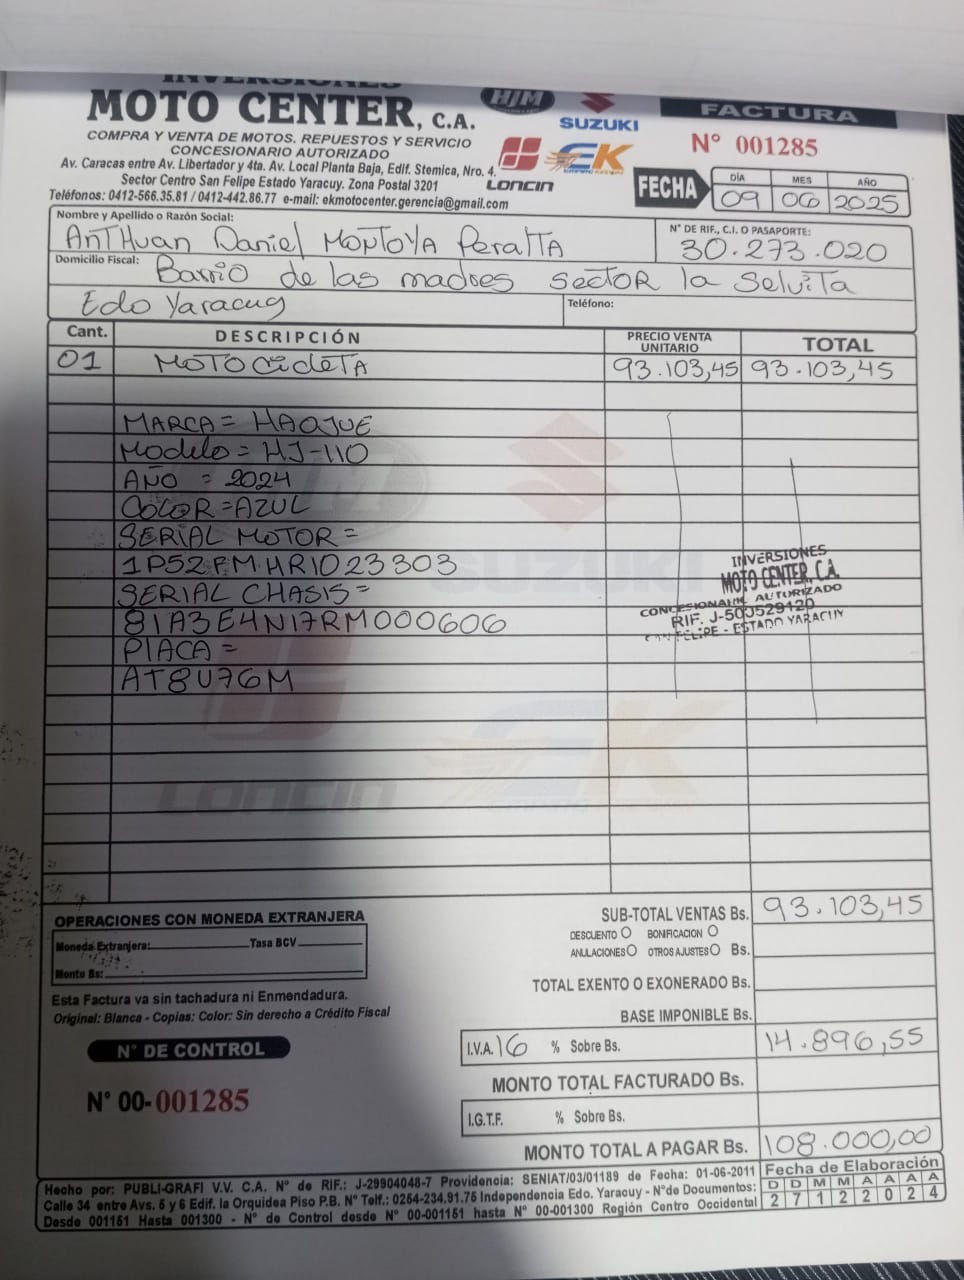 INVERSIONES
MOTO CENTER, C.A.
COMPRA Y VENTA DE MOTOS. REPUESTOS Y SERVICIO
CONCESIONARIO AUTORIZADO
Av. Caracas entre Av. Libertador y 4ta. Av. Local Planta Baja, Edif. Stemica, Nro. 4.
Sector Centro San Felipe Estado Yaracuy. Zona Postal 3201
Teléfonos: 0412-566.35.81 / 0412-442.86.77 e-mail: ekmotocenter.gerencia@gmail.com
HJM
SUZUKI
LONCIN
EK
FACTURA
N° 001285
FECHA
DÍA MES AÑO
09 06 2025
Nombre y Apellido o Razón Social:
AnTHuan Daniel MONTOYA PeralTA
N° DE RIF., C.I. O PASAPORTE:
30.273.020
Domicilio Fiscal: Barrio de las madres SECTOR la Selvita
Edo Yaracuy
Teléfono:
Cant. DESCRIPCIÓN PRECIO VENTA UNITARIO TOTAL
01 MOTOCicleTA 93.103,45 93.103,45
MARCA= HAOJUE
Modelo= HJ-110
AÑO = 2024
COLOR=AZUL
SERIAL MOTOR=
1P52FMHR1023303
SERIAL CHASIS=
81A3E4N17RM000606
PLACA=
AT8U76M
INVERSIONES
MOTO CENTER, C.A.
CONCESIONARIO AUTORIZADO
RIF. J-500529120
SAN FELIPE - ESTADO YARACUY
SUZUKI
LONCIN
EK
OPERACIONES CON MONEDA EXTRANJERA
Moneda Extranjera: Tasa BCV
Monto Bs:
Esta Factura va sin tachadura ni Enmendadura.
Original: Blanca - Copias: Color: Sin derecho a Crédito Fiscal
N° DE CONTROL
N° 00-001285
SUB-TOTAL VENTAS Bs. 93.103,45
DESCUENTO BONIFICACION
ANULACIONES OTROS AJUSTES Bs.
TOTAL EXENTO O EXONERADO Bs.
BASE IMPONIBLE Bs.
I.V.A. 16 % Sobre Bs. 14.896,55
MONTO TOTAL FACTURADO Bs.
I.G.T.F. % Sobre Bs.
MONTO TOTAL A PAGAR Bs. 108.000,00
Hecho por: PUBLI-GRAFI V.V. C.A. N° de RIF.: J-29904048-7 Providencia: SENIAT/03/01189 de Fecha: 01-06-2011
Calle 34 entre Avs. 5 y 6 Edif. la Orquidea Piso P.B. N° Telf.: 0254-234.91.75 Independencia Edo. Yaracuy - N°de Documentos:
Desde 001151 Hasta 001300 - N° de Control desde N° 00-001151 hasta N° 00-001300 Región Centro Occidental
Fecha de Elaboración
D D M M A A A A
2 7 1 2 2 0 2 4